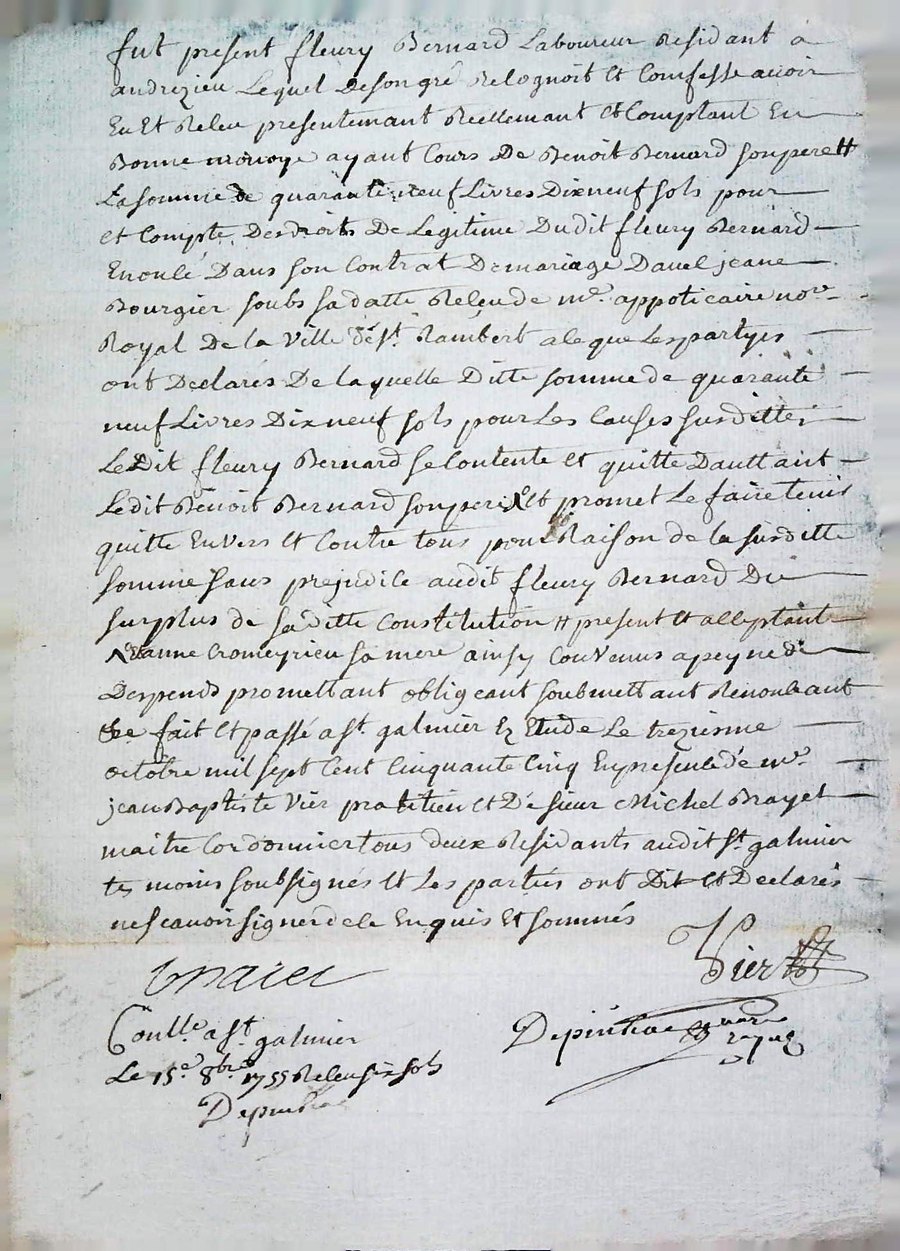 fut present fleury Bernard Laboureur Residant a
andrezieu Lequel de son gré Recognoit et Confesse avoir
Eu Et Receu presentemant Reellemant et Comptant En
Bonne monoye ayant Cours De Benoit Bernard son pere #
La somme de quarante neuf Livres Dix neuf sols pour
et Compte Des droits De Legitime Dudit fleury Bernard
Enoncé Dans son Contrat De mariage Davec jeane
Bourgier soubs sa datte Receu de me. appoticaire nore
Royal De la Ville de st. Rambert a ce que Les partyes
ont Declarés De laquelle Ditte somme de quarante
neuf Livres Dix neuf sols pour Les Causes susdittes
Le Dit fleury Bernard se Contente et quitte Dauttant
Ledit Benoit Bernard son pere et promet Le faire tenir
quitte Envers et Contre tous pour Raison de la susditte
somme sans prejudice audit fleury Bernard Du
surplus de sa ditte Constitution # present et acceptant
et anne Cromeyrieu sa mere ainsy Convenus a peyne de
Despends promettant obligeant soubmettant Renonceant
fait et passé a st. galmier Ez Etude Le trezieme
octobre mil sept Cent Cinquante Cinq En presence de me.
jean Baptiste Vier pratitien et De sieur Michel Brayet
maitre Cordonnier tous deux Residants audit st. galmier
temoins soubsignés et Les parties ont Dit et Declarés
ne scavoir signer de ce Enquis Et sommés
Vier
Contlle. a st. galmier
Le 15e. 8bre 1755 Receu six sols